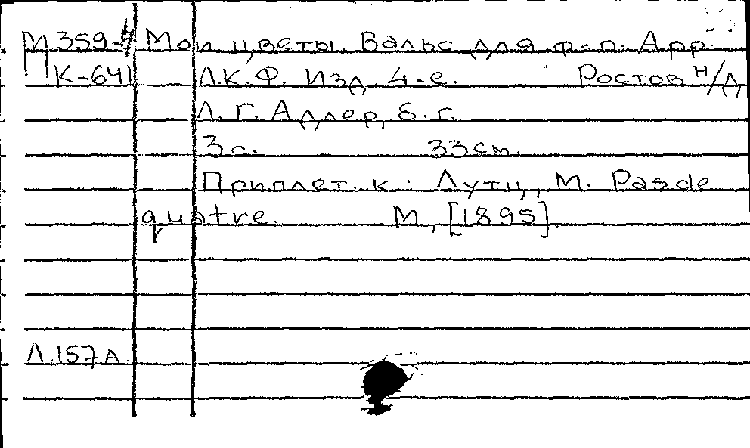 М359-4 Мои цветы. Вальс для ф.-п. Арр.
К-641 Л.К.Ф. Изд. 4-е. Ростов н/Д,
Л. Г. Адлер, б. г.
3 с. 33 см.
Приплет. к: Лутц, М. Pas de
quatre. М., [1895].
Л.157А